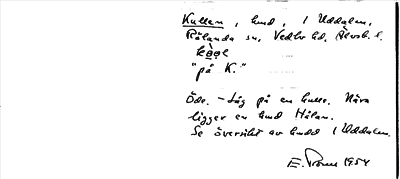 Kullen, hmd, i Uddalen,
Rölanda sn, Vedbo hd, Älvsb. l.
"på K."
Öde. – Låg på en kulle. Nära
ligger en hmd Hålan.
Se översikt av hmdd i Uddalen.
E. 1954